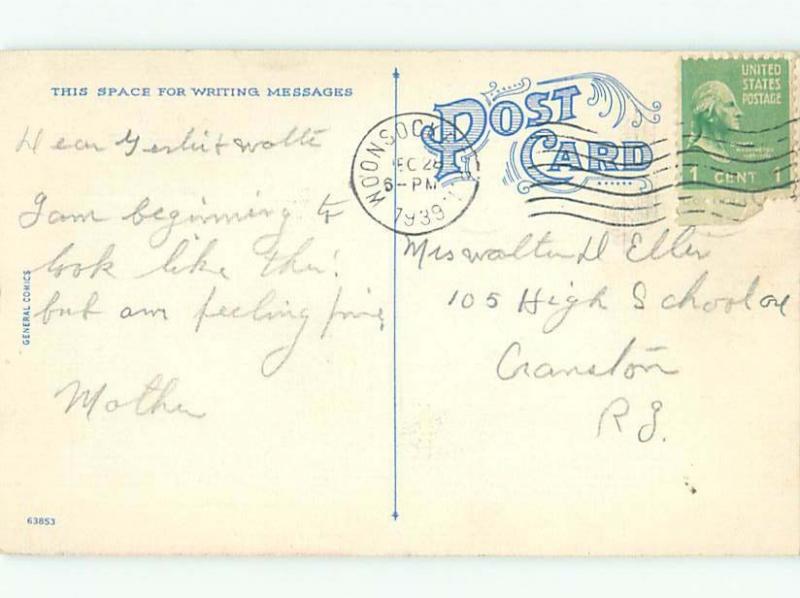 THIS SPACE FOR WRITING MESSAGES
POST CARD
WOONSOCKET
DEC 28
6-PM
1939
R.I.
UNITED
STATES
POSTAGE
WASHINGTON
1 CENT 1
Dear & Walter
I am beginning to
look like this!
but am feeling fine
Mother
Mrs Walter D Eller
105 High School ave
Cranston
R.I.
GENERAL COMICS
63853